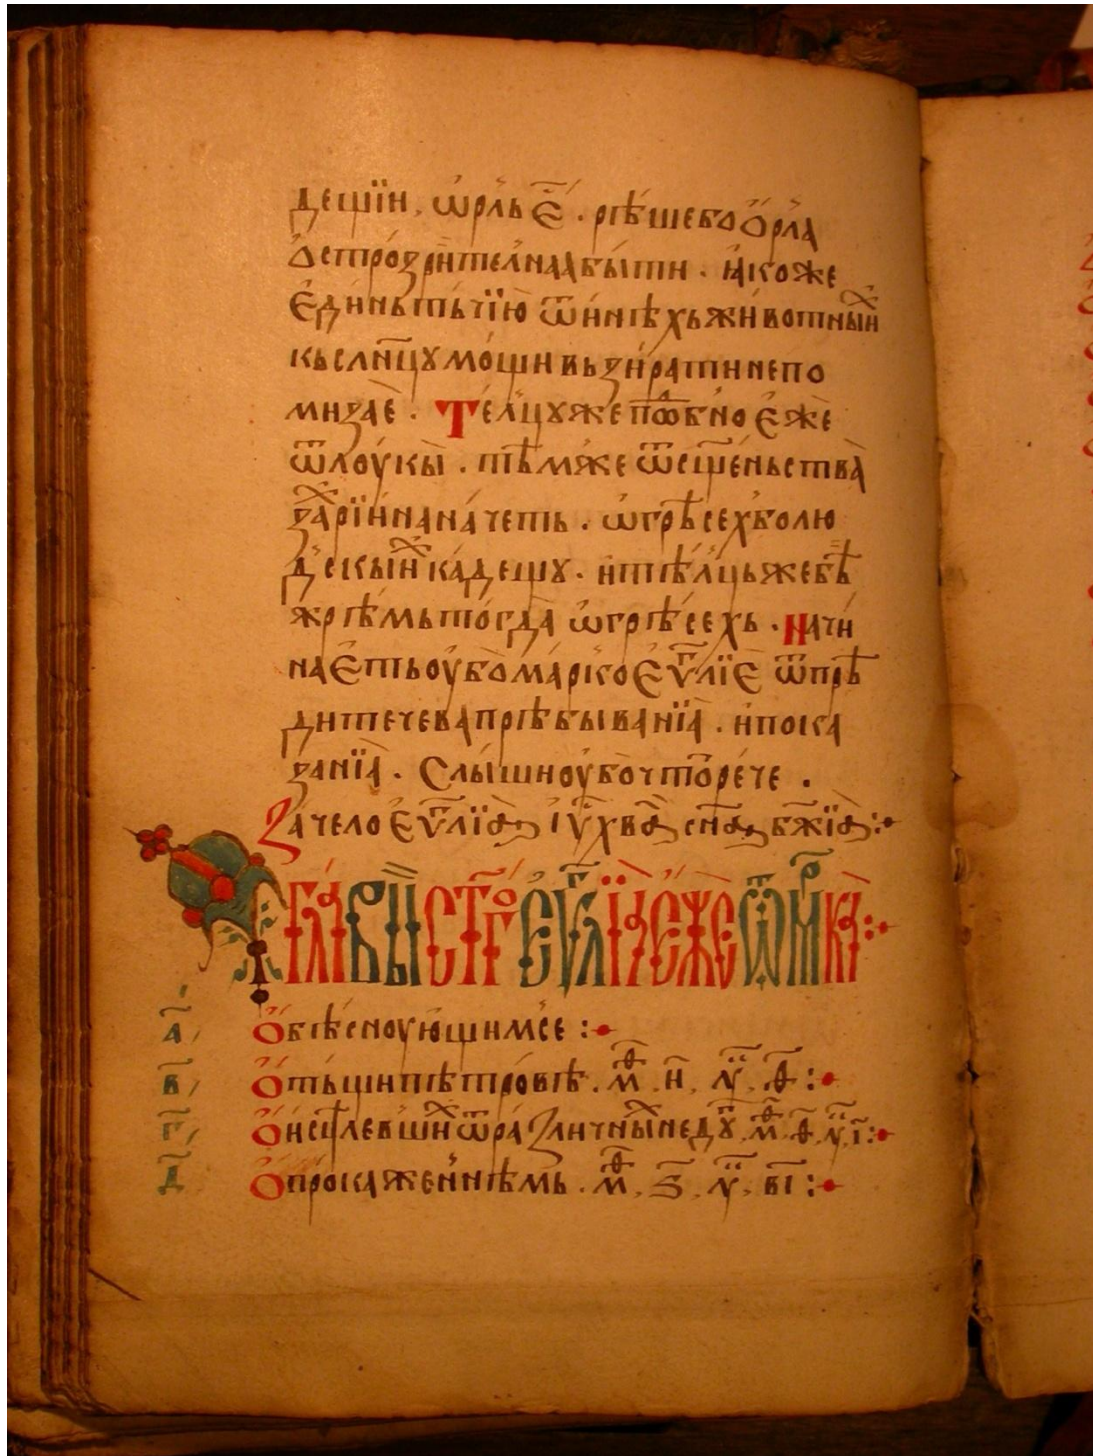 дещїи, ѡ҆рлъ Є҆҃. рѣше бо Ѻ҆рла
ѻ҆строзрителнаа бы́ти. ꙗ҆коже
є҆ди́нь ть́чїю ѿ и҆нѣхь жи́вотныиⷯ
кь слн҃цу мо́щи вьзи́рати не по
мизае̏. Те́лцу же пѡⷣбно є҆́же
ѿ лоу́кы̏. тѣ́мже ѿ сщ҃е́ньства̏
заⷯрїи́ на на́четь. ѡ҆ грѣсех бо лю
дскыиⷯ ка́дещу. и҆ тѣ́лць же бѣ̏
жрѣ́мь то́гда̏ ѡ҆ грѣ́сехь. Начи́
наєть оу҆бо ма́рко є҆ѵⷢ҇лїе ѿ прѣ
дитечева прѣбыванїа̏. и҆ пока
занїа̏. Слы́ши оу҆бо что̏ рече.
Зачело є҆ѵⷢ҇лїа і҆ѵ҃ хв҃а сн҃а бж҃їа:
Главы ст҃гѡ є҆ѵⷢ҇лїа є҆́же ѿ мрⷦ҇ка:
а҃ Ѻ҆ бѣ́сноу́ющимсе:
в҃ Ѻ҆ ть́щи пѣтро́вѣ. мⷴ҇. н҃. лꙋ. ѳ҃:
г҃ Ѻ҆ и҆сцѣ́левшиⷯ ѿ ра́зличныиⷯ неду́гь. мⷴ҇. ѳ҃. лꙋ. і҃:
д҃ Ѻ҆ прокаже́ннѣмь. мⷴ҇. ѕ҃. лꙋ. в҃і: